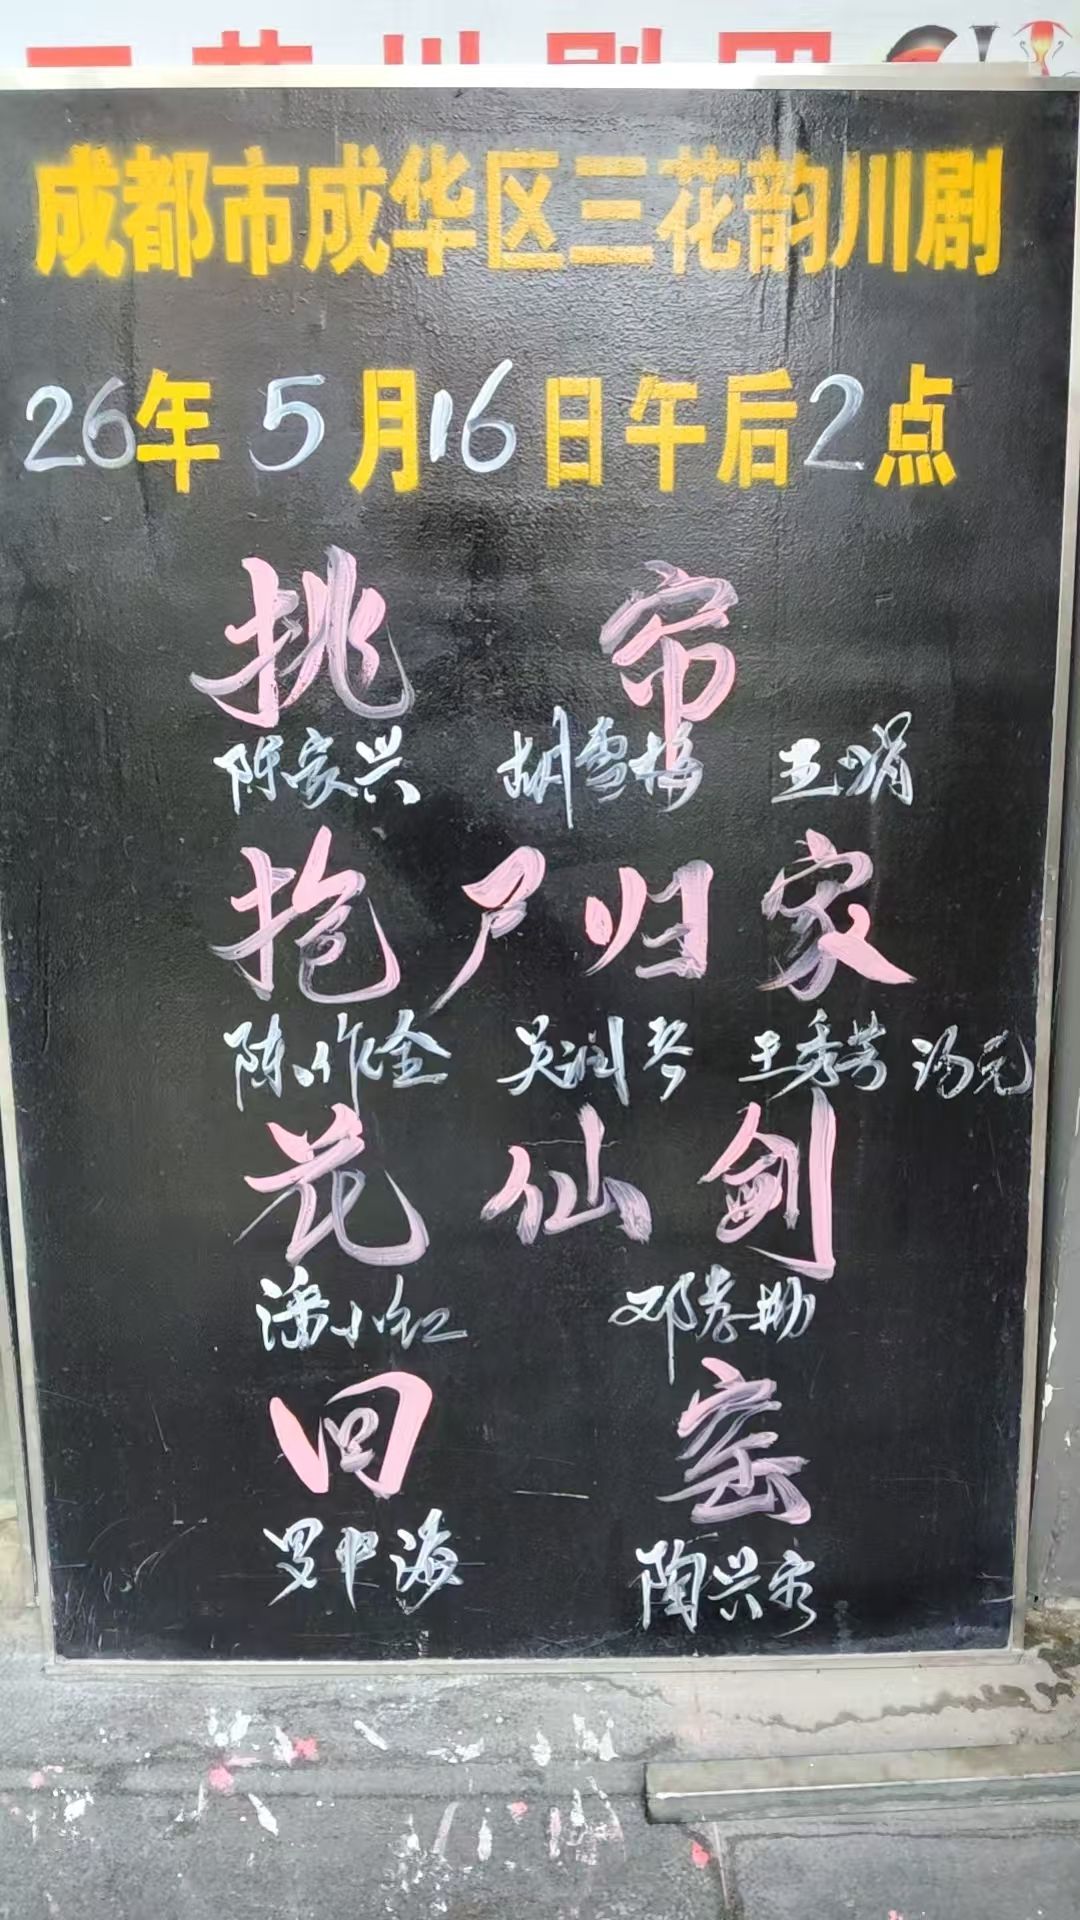 三花川剧团
成都市成华区三花韵川剧
26年5月16日午后2点
挑帘
陈家兴 胡雪梅 王娟
抱尸归家
陈作全 吴润琴 王秀芳 汤元
花仙剑
潘小红 邓孝勋
回窑
罗中海 陶兴永